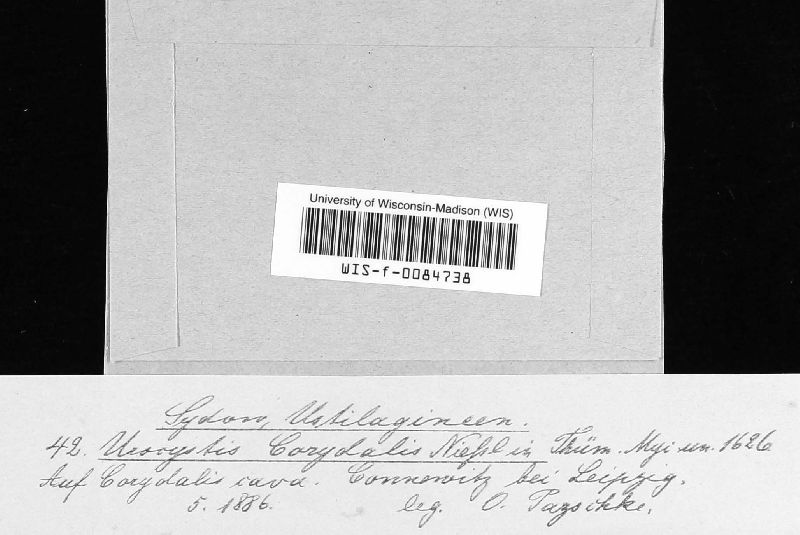 University of Wisconsin-Madison (WIS)
WIS-f-0084738
Sydow, Ustilagineen.
42. Urocystis Corydalis Nießl in Thüm. Myc. un. 1626
Auf Corydalis cava. Connewitz bei Leipzig.
5. 1886. leg. O. Pazschke.